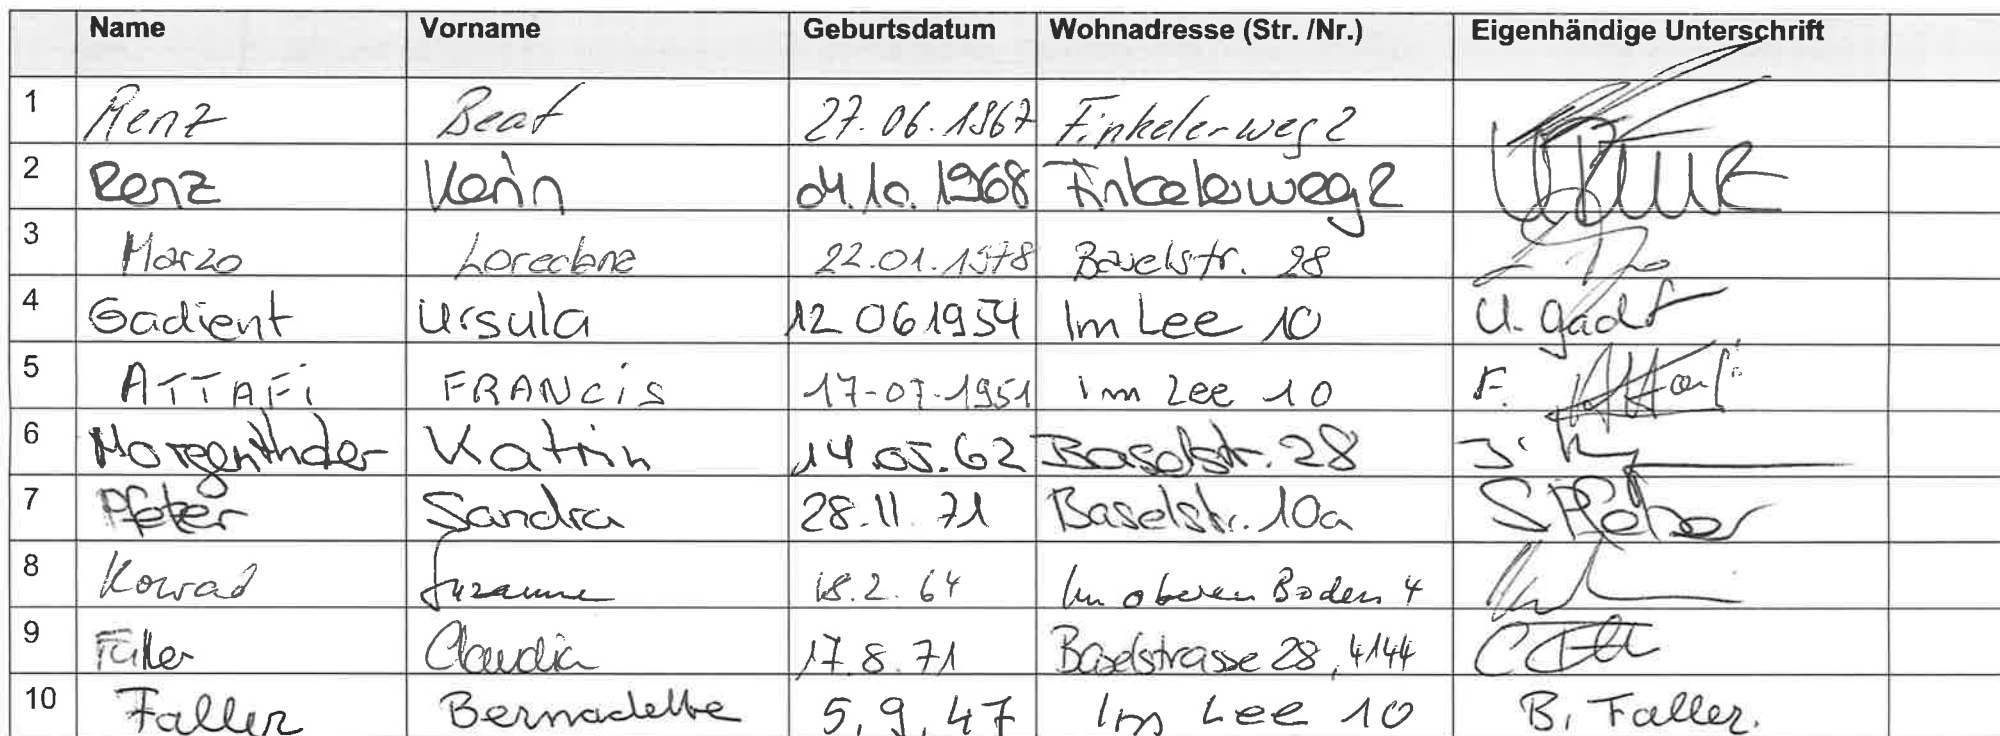 Name Vorname Geburtsdatum Wohnadresse (Str. /Nr.) Eigenhändige Unterschrift
1 Renz Beat 27.06.1967 Finkelerweg 2
2 Renz 04.10.1968 Finkelerweg 2
3 Marzo Loredana 22.01.1978 Baselstr. 28
4 Gadient Ursula 12 06 1954 Im Lee 10 U. Gadt
5 ATTAFi FRANCiS 17-07-1951 im Lee 10 F. Attafi
6 Morgenthaler Katrin 14.05.62 Baselstr. 28
7 Sandra 28.11.71 Baselstr. 10a
8 Konrad Suzanne 18.2.64 Im oberen Boden 4
9 Claudia 17.8.71 Baselstrasse 28, 4144
10 Faller Bernadette 5.9.47 Im Lee 10 B. Faller.